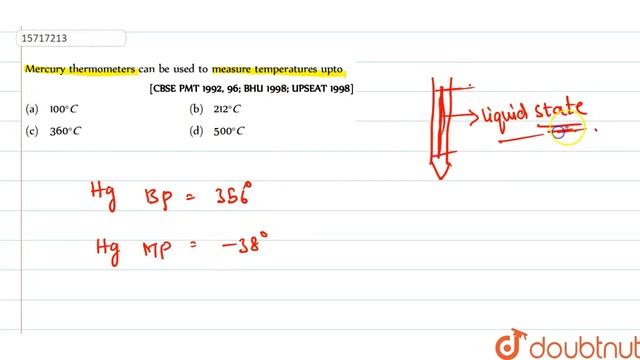 15717213
Mercury thermometers can be used to measure temperatures upto
[CBSE PMT 1992, 96; BHU 1998; UPSEAT 1998]
(a) 100°C (b) 212°C
(c) 360°C (d) 500°C
liquid state
Hg BP = 356°
Hg MP = -38°
doubtnut